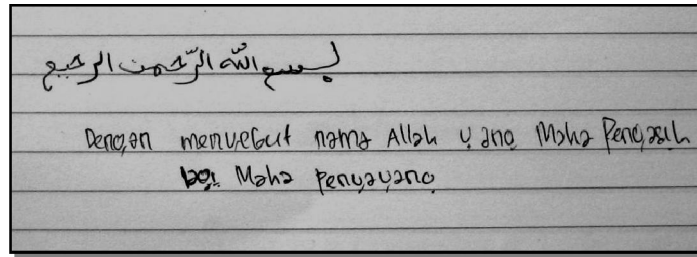 بسم الله الرّحمن الرحيم
Dengan menyebut nama Allah yang Maha Pengasih
lagi Maha Penyayang